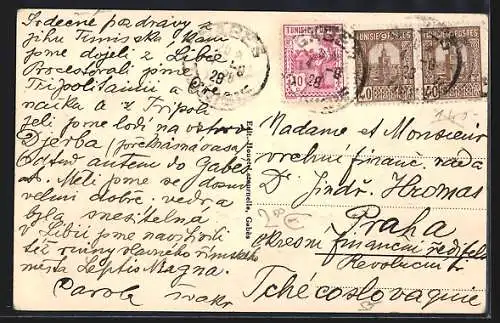 Srdečné pozdravy z
jihu Tuniska kam
jsme dojeli z Libie
Procestovali jsme
Tripolitanii a
a z Tripoli
jeli jsme lodí na ostrov
Djerba
Odtud autem do Gabes
Měli jsme se dosud
velmi dobře vedra
byla snesitelna
V Libii jsme navštívili
též ruiny slavného římského
města Leptis Magna.
Karola švakr
GABES
28
TUNISIE POSTES
10
GABES
28
TUNISIE POSTES
40
TUNISIE POSTES
40
Edit. Gabès
Madame et Monsieur
vrchní financ. rada
Dr. Jindr. Hromas
Praha
okresní finanční ředitels
Revoluční
Tchécoslovaquie